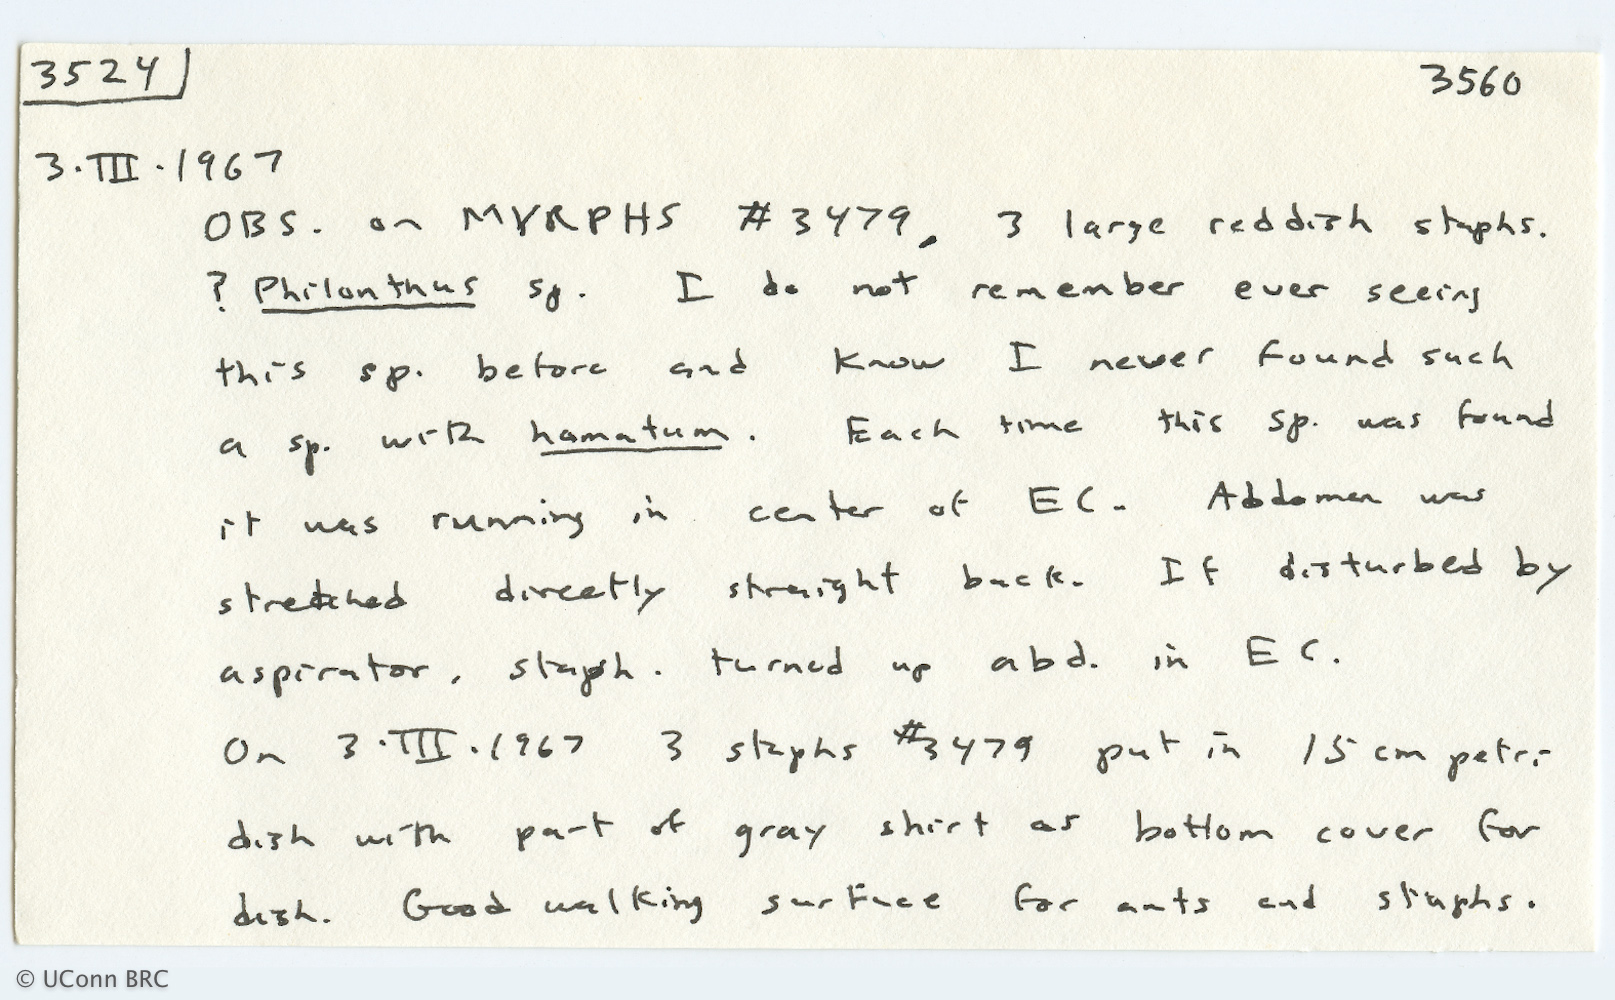 3524 3560
3.III.1967
OBS. on MYRPHS #3479, 3 large reddish staphs.
? Philonthus sp. I do not remember ever seeing
this sp. before and know I never found such
a sp. with hamatum. Each time this sp. was found
it was running in center of EC. Abdomen was
stretched directly straight back. If disturbed by
aspirator, staph. turned up abd. in EC.
On 3.III.1967 3 staphs #3479 put in 15 cm petri
dish with part of gray shirt as bottom cover for
dish. Good walking surface for ants and staphs.
© UConn BRC